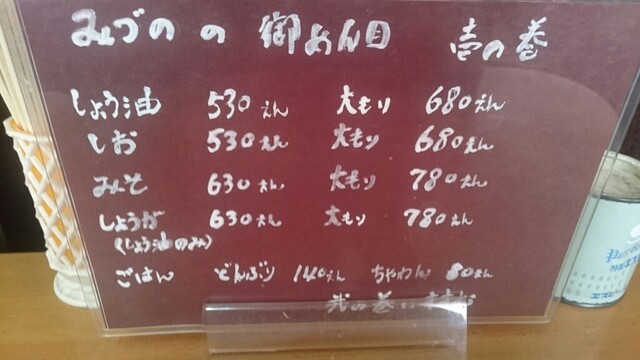 みづの の 御めん目 壱の巻
しょう油 530えん 大もり 680えん
しお 530えん 大もり 680えん
みそ 630えん 大もり 780えん
しょうが 630えん 大もり 780えん
(しょう油のみ)
ごはん どんぶり 140えん ちゃわん 80えん
弐の巻